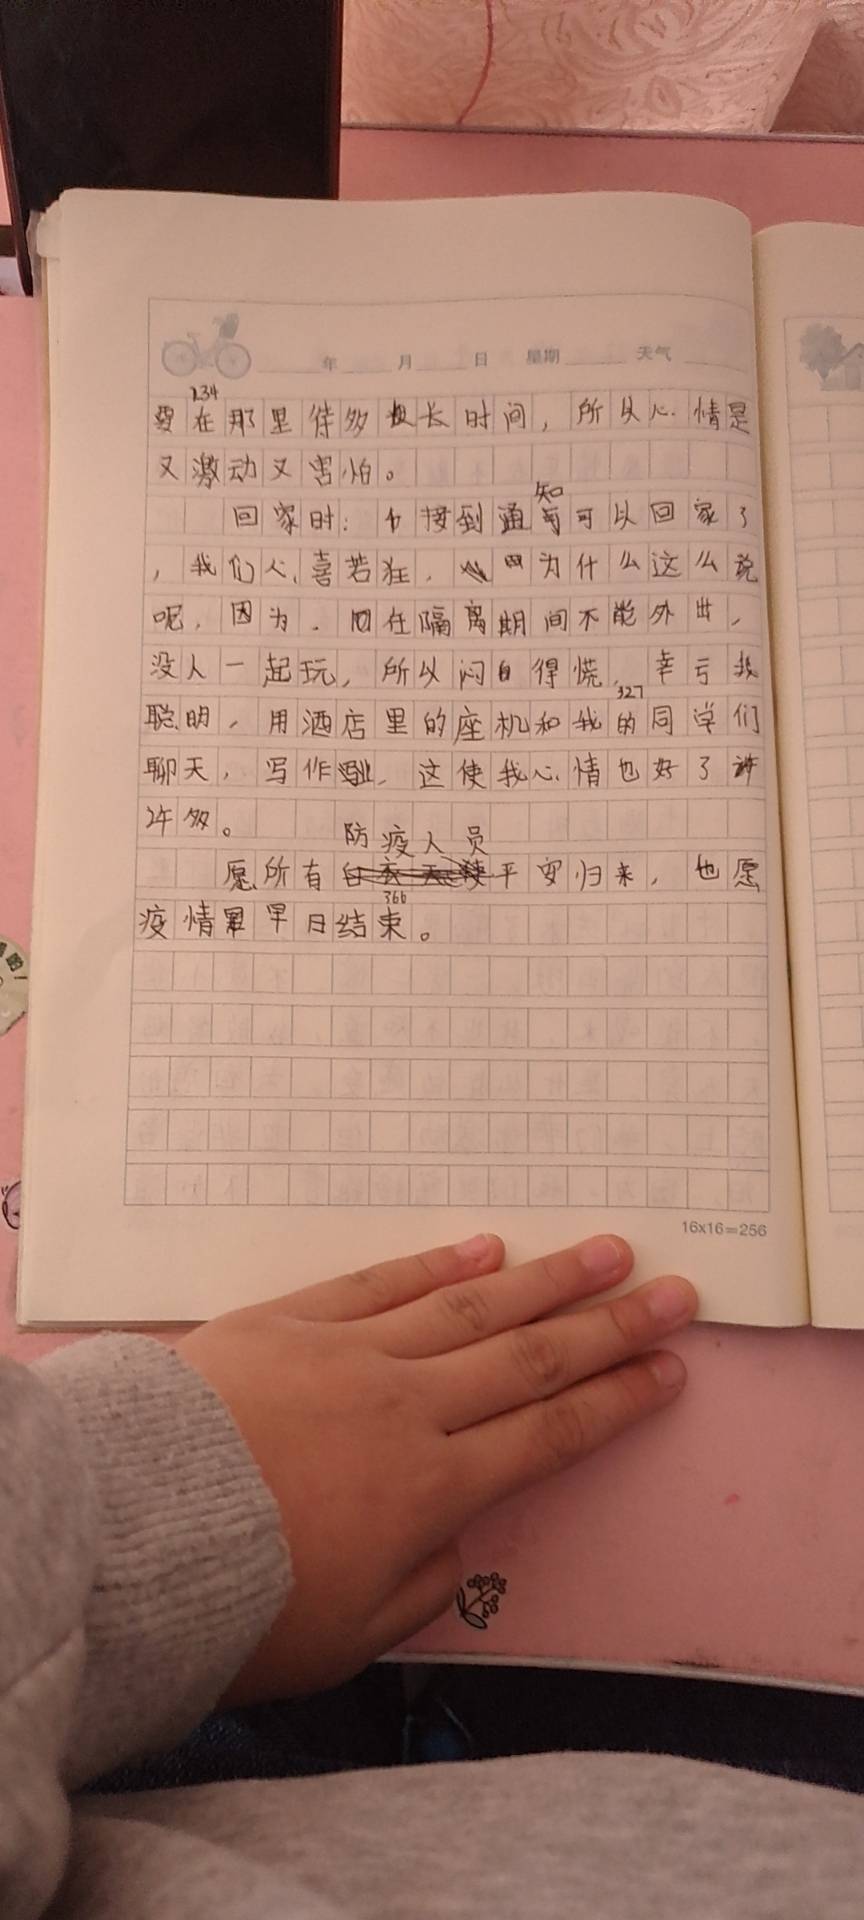 年 月 日 星期 天气
234
要在那里待多长时间，所以心情是
又激动又害怕。
知
回家时：接到通可以回家了
，我们人喜若狂，为什么这么说
呢，因为．在隔离期间不能外出，
没人一起玩，所以闷得慌，幸亏我
327
聪明，用酒店里的座机和我的同学们
聊天，写作业，这使我心情也好了许
许多。
防疫人员
愿所有平安归来，也愿
366
疫情早日结束。
16x16=256